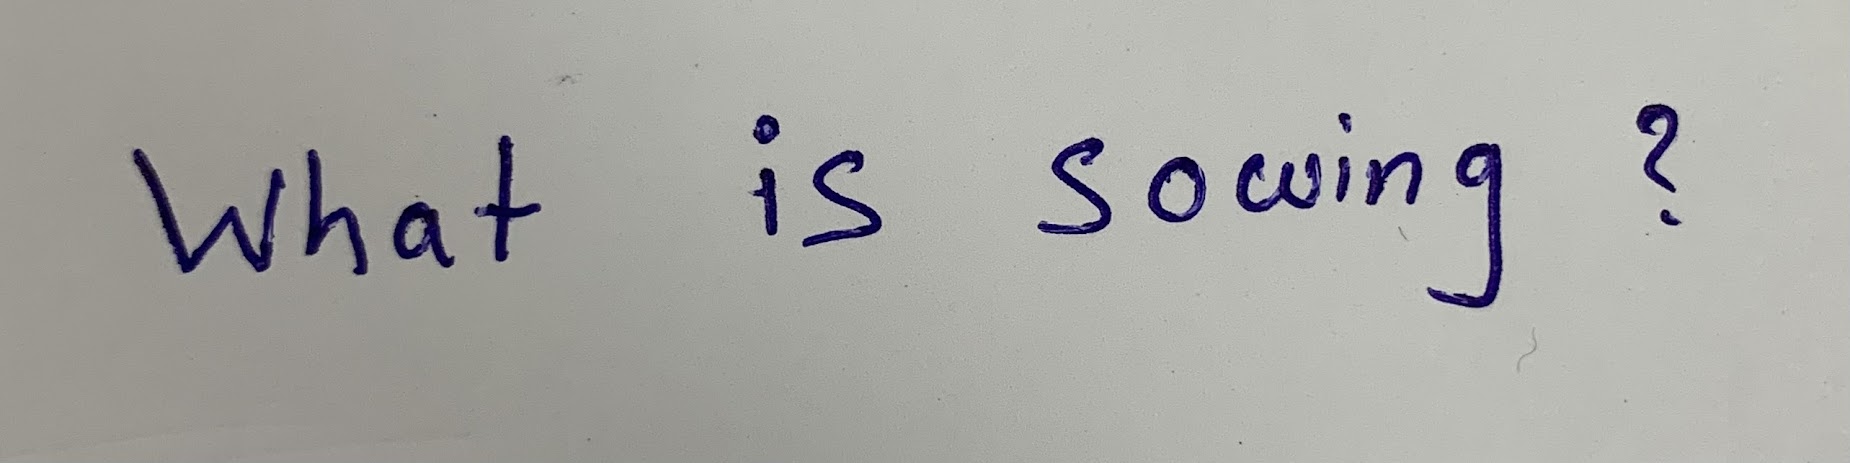 What is sowing ?